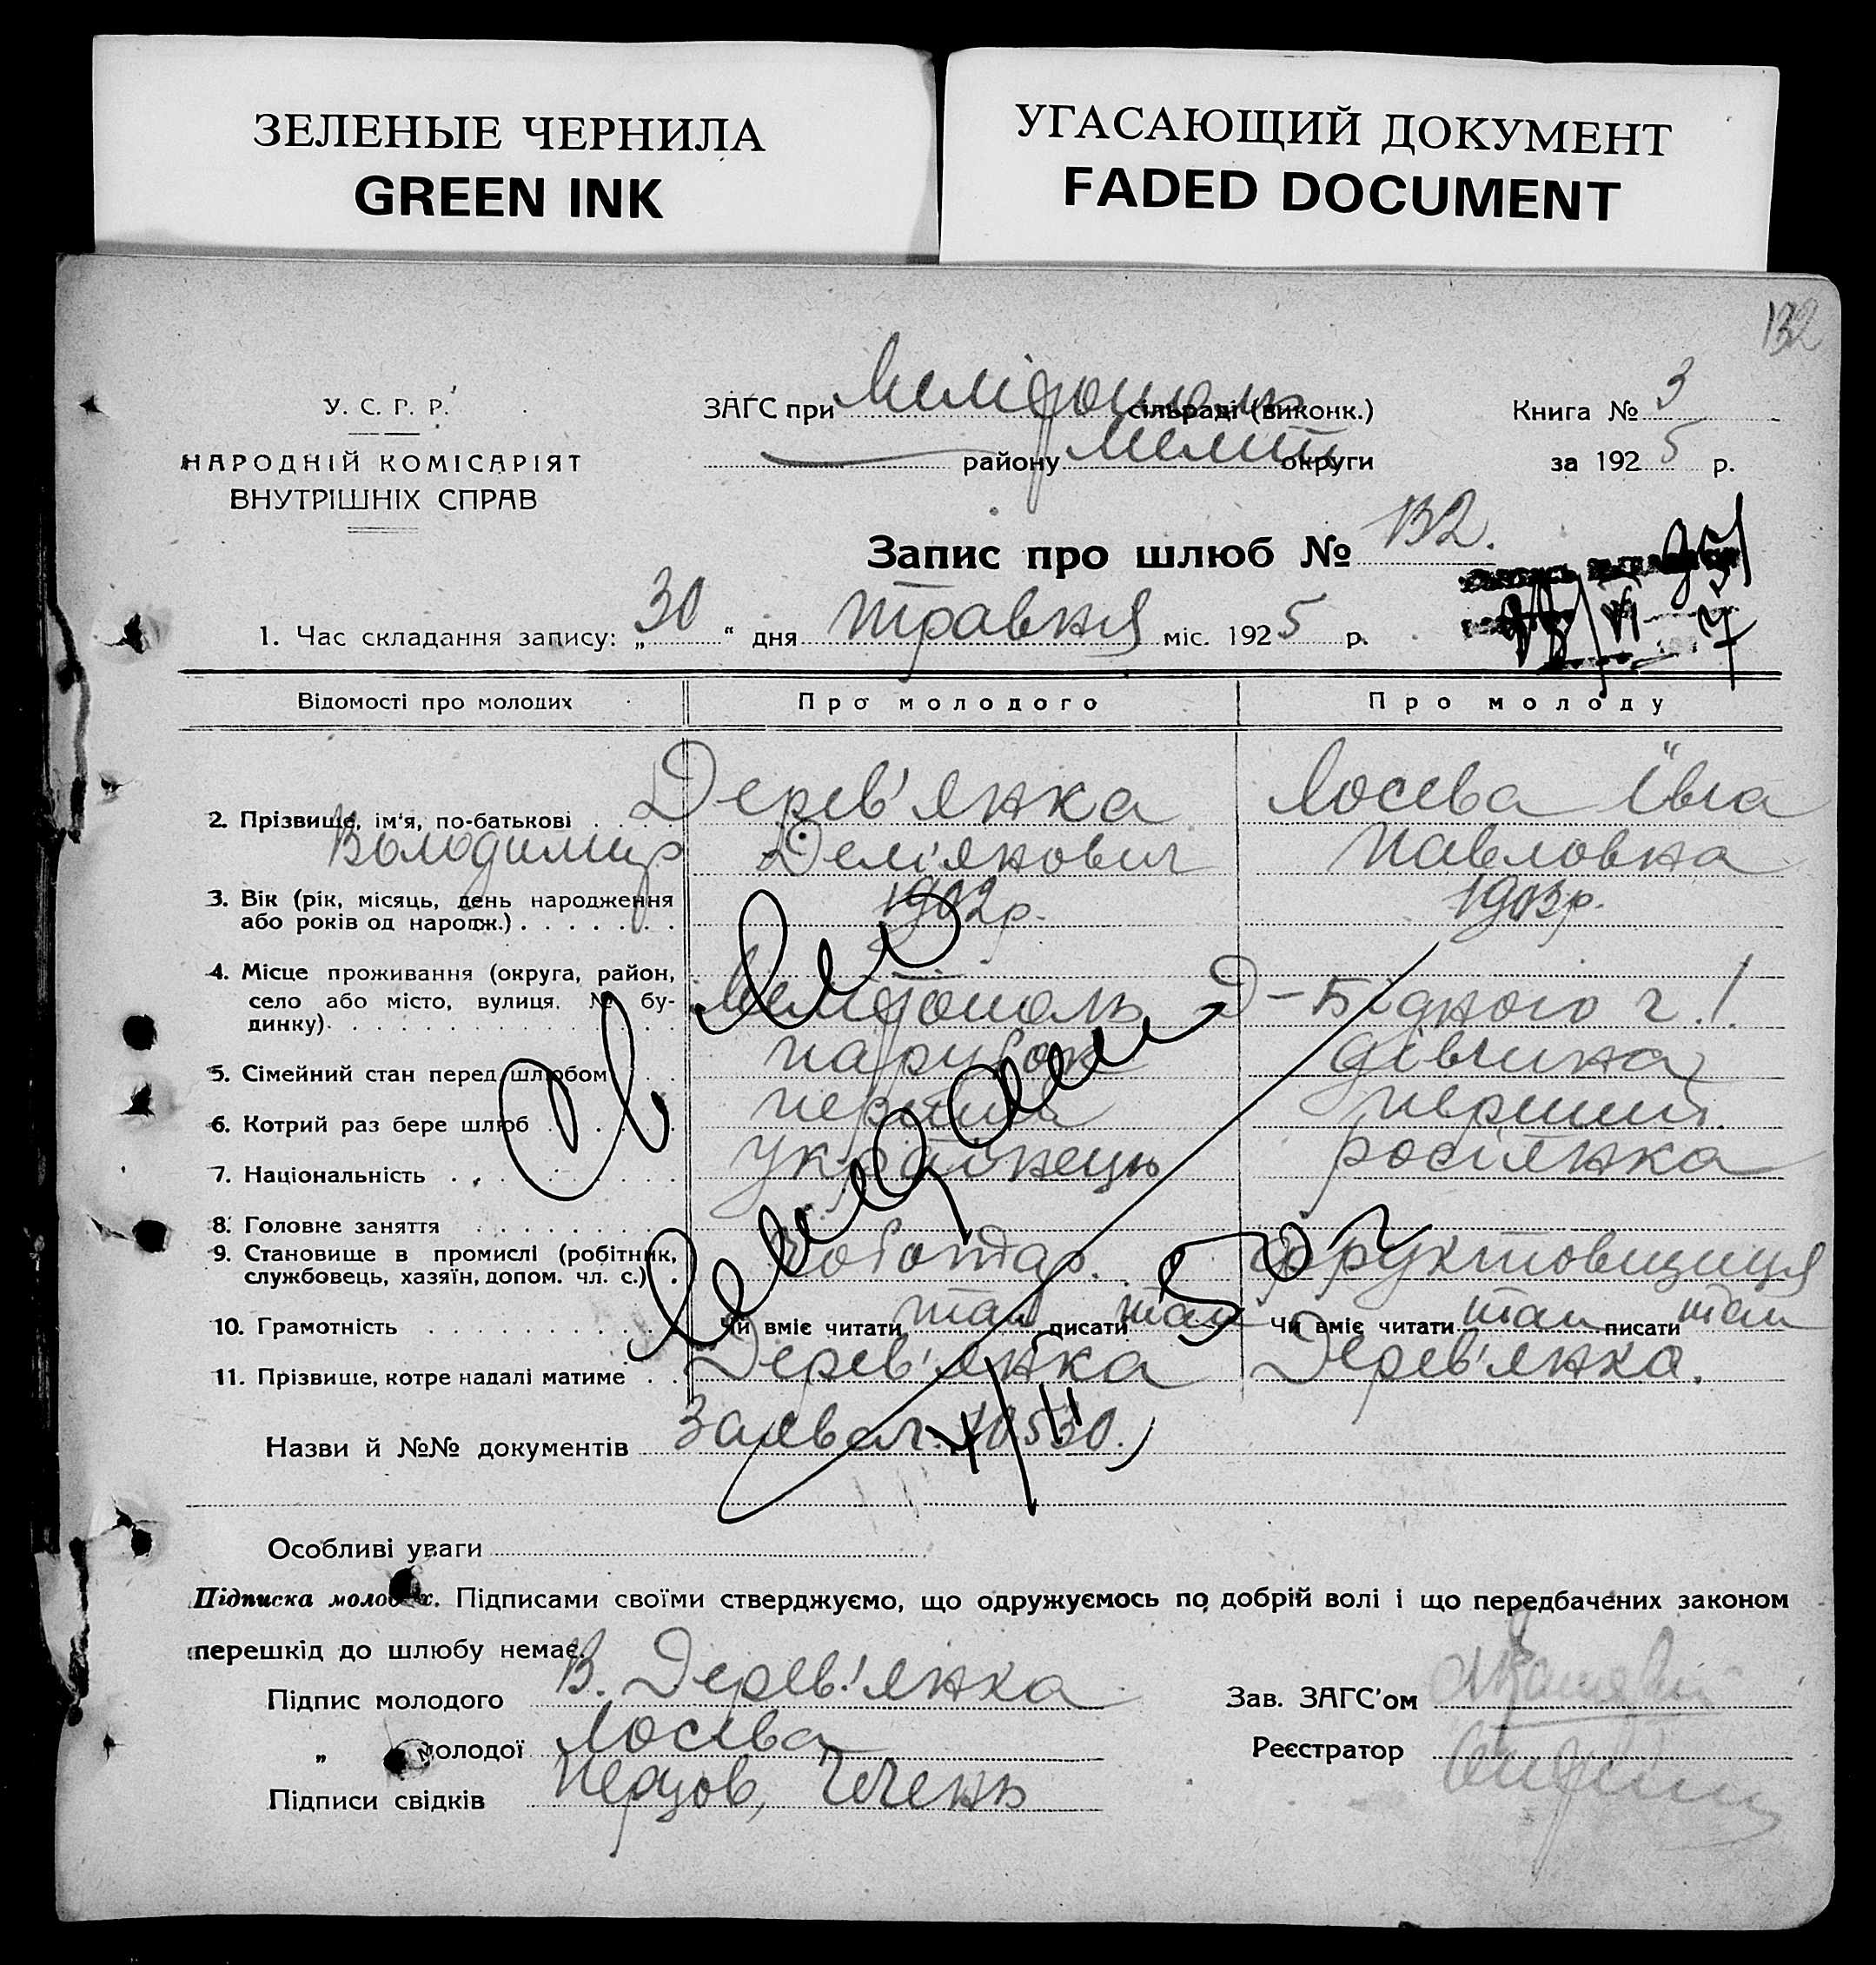 ЗЕЛЕНЫЕ ЧЕРНИЛА
GREEN INK
УГАСАЮЩИЙ ДОКУМЕНТ
FADED DOCUMENT
132
У. С. Р. Р.
НАРОДНІЙ КОМІСАРІЯТ
ВНУТРІШНІХ СПРАВ
ЗАГС при Мелітополь сільраді (виконк.)
району Мелит округи
Книга № 3
за 1925 р.
Запис про шлюб № 132.
1. Час складання запису: „30“ дня травня міс. 1925 р.
Відомості про молодих Про молодого Про молоду
2. Прізвище, ім'я, по-батькові Дерев'янка Лосєва Ївга
Володимир Дем'янович Павловна
3. Вік (рік, місяць, день народження 1902 р. 1903 р.
або років од народж.)
4. Місце проживання (округа, район,
село або місто, вулиця, № бу- Мелітополь Д-Бідного ч. 1.
динку)
5. Сімейний стан перед шлюбом парубок дівчина
6. Котрий раз бере шлюб перший перший
7. Національність українець росіянка
8. Головне заняття
9. Становище в промислі (робітник, чоботар. фруктовщиця
службовець, хазяїн, допом. чл. с.)
10. Грамотність Чи вміє читати так писати так Чи вміє читати так писати так
11. Прізвище, котре надалі матиме Дерев'янка Дерев'янка.
Назви й №№ документів
Особливі уваги
Підписка молодих. Підписами своїми стверджуємо, що одружуємось по добрій волі і що передбачених законом
перешкід до шлюбу немає.
Підпис молодого В. Дерев'янка
Зав. ЗАГС'ом
„ молодої Лосєва
Реєстратор
Підписи свідків Перцов, Чечень